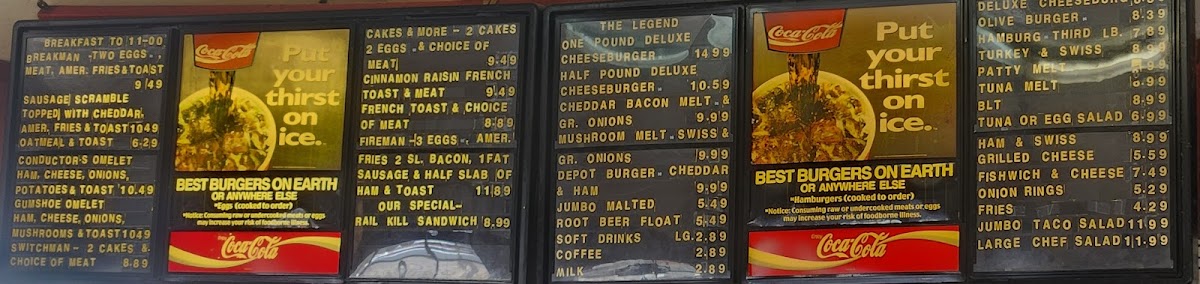 BREAKFAST TO 11-00
BREAKMAN -TWO EGGS-,
MEAT, AMER. FRIES & TOAST
9 49
SAUSAGE SCRAMBLE
TOPPED WITH CHEDDAR,
AMER. FRIES & TOAST 10 49
OATMEAL & TOAST 6-29
CONDUCTOR'S OMELET
HAM, CHEESE, ONIONS,
POTATOES & TOAST 10.49
GUMSHOE OMELET
HAM, CHEESE, ONIONS,
MUSHROOMS & TOAST 10 49
SWITCHMAN - 2 CAKES &
CHOICE OF MEAT 8-89
Coca-Cola
Put
your
thirst
on
ice.
BEST BURGERS ON EARTH
OR ANYWHERE ELSE
*Eggs (cooked to order)
*Notice: Consuming raw or undercooked meats or eggs
may increase your risk of foodborne illness.
Enjoy
Coca-Cola
CAKES & MORE - 2 CAKES
2 EGGS & CHOICE OF
MEAT 9.49
CINNAMON RAISIN FRENCH
TOAST & MEAT 9.49
FRENCH TOAST & CHOICE
OF MEAT 8-89
FIREMAN -3 EGGS-, AMER.
FRIES 2 SL. BACON, 1 FAT
SAUSAGE & HALF SLAB OF
HAM & TOAST 11 89
OUR SPECIAL-
RAIL KILL SANDWICH 8.99
THE LEGEND
ONE POUND DELUXE
CHEESEBURGER- 14 99
HALF POUND DELUXE
CHEESEBURGER- 10.59
CHEDDAR BACON MELT-&
GR. ONIONS 9.99
MUSHROOM MELT-SWISS &
GR. ONIONS 9.99
DEPOT BURGER- CHEDDAR
& HAM 9.99
JUMBO MALTED 5.49
ROOT BEER FLOAT 5.49
SOFT DRINKS LG.2.89
COFFEE 2.89
MILK 2.89
Coca-Cola
Put
your
thirst
on
ice.
BEST BURGERS ON EARTH
OR ANYWHERE ELSE
*Hamburgers (cooked to order)
*Notice: Consuming raw or undercooked meats or eggs
may increase your risk of foodborne illness.
Enjoy
Coca-Cola
DELUXE CHEESEBURG
OLIVE BURGER- 8-39
HAMBURG-THIRD LB. 7 89
TURKEY & SWISS 8.99
PATTY MELT-
TUNA MELT
BLT 8-99
TUNA OR EGG SALAD 6-99
HAM & SWISS 8.99
GRILLED CHEESE 5.59
FISHWICH & CHEESE 7-49
ONION RINGS 5.29
FRIES 4.29
JUMBO TACO SALAD 11.99
LARGE CHEF SALAD 11.99